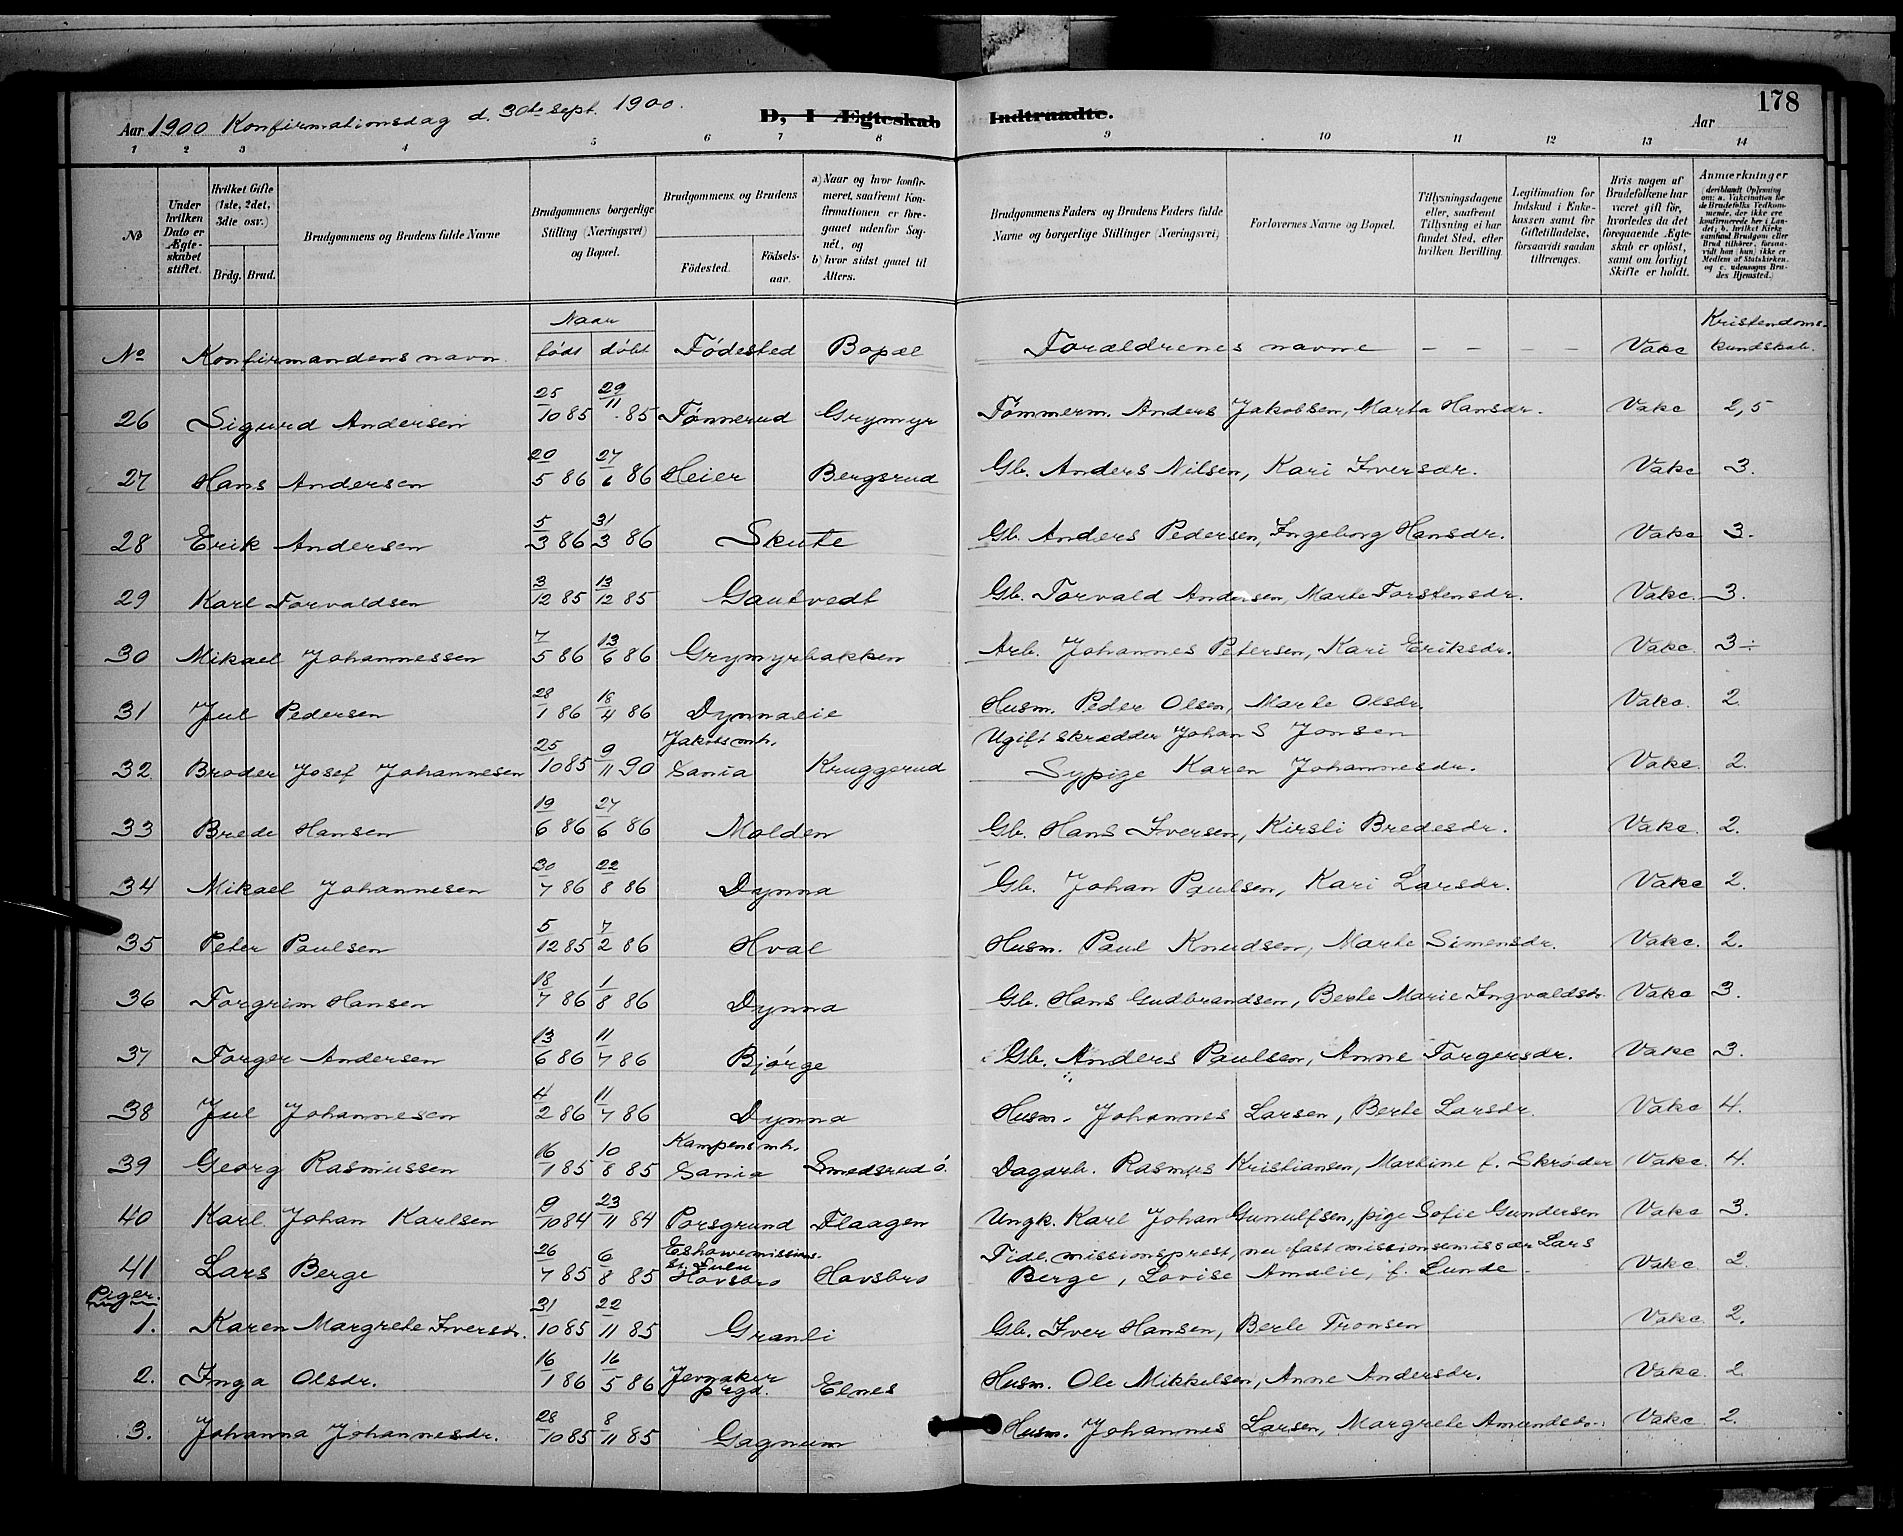 178
Aar 1900 Konfirmationsdag d. 30te sept. 1900. D, I Ægteskab Indtraadte. Aar
1 2 3 4 5 6 7 8 9 10 11 12 13 14
No
Under hvilken Dato er Ægteskabet stiftet.
Hvilket Gifte (1ste, 2det, 3die osv.)
Brdg. Brud.
Brudgommens og Brudens fulde Navne
Brudgommens borgerlige Stilling (Næringsvei) og Bopæl.
Brudgommens og Brudens
Fødested. Fødselsaar.
a) Naar og hvor konfirmeret, saafremt Konfirmationen er foregaaet udenfor Sognet, og
b) hvor sidst gaaet til Alters.
Brudgommens Faders og Brudens Faders fulde Navne og borgerlige Stillinger (Næringsvei)
Forlovernes Navne og Bopæl.
Tillysningsdagene eller, saafremt Tillysning ei har fundet Sted, efter hvilken Bevilling.
Legitimation for Indskud i Enkekassen samt for Giftetilladelse, forsaavidt saadan tiltrænges.
Hvis nogen af Brudefolkene har været gift før, hvorledes da det foregaaende Ægteskab er opløst, samt om lovligt Skifte er holdt.
Anmærkninger
(deriblandt Oplysning om: a. Vaccination for de Brudefolks Vedkommende, der ikke ere konfirmerede her i Landet; b. hvilket Kirkesamfund Brudgom eller Brud tilhører, forsaavidt han (hun) ikke er Medlem af Statskirken, og c. udensogns Brudes Hjemsted.)
No Konfirmandens navn. Naar født døbt Fødested Bopæl Forældrenes navne — — — Vakc Kristendomskundskab.
26 Sigurd Andersen 25/10 85 29/11 85 Tønnerud Grymyr Tømmerm. Anders Jakobsen, Marta Hansdr. Vakc 2,5
27 Hans Andersen 20/5 86 27/6 86 Heier Bergsrud Gb. Anders Nilsen, Kari Iversdr. Vakc 3.
28 Erik Andersen 5/3 86 31/3 86 Skute Gb. Anders Pedersen, Ingeborg Hansdr. Vakc 3.
29 Karl Torvaldsen 3/12 85 13/12 85 Gautvedt Gb. Torvald Andersen, Marte Torstensdr. Vakc. 3.
30 Mikael Johannessen 7/5 86 13/6 86 Grymyrbakken Arb. Johannes Petersen, Kari Eriksdr. Vakc. 3÷
31 Jul Pedersen 28/1 86 18/4 86 Dynnaeie Husm. Peder Olsen, Marte Olsdr. Vakc. 2.
32 Broder Josef Johannesen 25/10 85 9/11 90 Jakobs mh. Sania Kruggerud Ugift skrædder Johan S Jonsen
Sypige Karen Johannesdr. Vakc. 2.
33 Brede Hansen 19/6 86 27/6 86 Molden Gb. Hans Iversen, Kirsti Bredesdr. Vakc. 2.
34 Mikael Johannesen 30/7 86 22/8 86 Dynna Gb. Johan Paulsen, Kari Larsdr. Vakc 2.
35 Peter Paulsen 5/12 85 7/2 86 Hval Husm. Paul Knudsen, Marte Simensdr. Vakc. 2.
36 Torgrim Hansen 18/7 86 1/8 86 Dynna Gb. Hans Gudbrandsen, Berte Marie Ingvaldsdr. Vakc 3.
37 Torger Andersen 13/6 86 11/7 86 Bjørge Gb. Anders Paulsen, Anne Torgersdr. Vakc 3.
38 Jul Johannesen 4/2 86 11/7 86 Dynna Husm. Johannes Larsen, Berte Larsdr. Vakc 4.
39 Georg Rasmussen 16/1 85 10/8 85 Kampens mh. Sania Smedsrud ø. Dagarb. Rasmus Kristiansen, Martine f. Skrøder Vakc. 4.
40 Karl Johan Karlsen 9/10 84 23/11 84 Porsgrund Flaagen Ungk. Karl Johan Gunulfsen, pige Sofie Gundersen Vakc 3.
41 Lars Berge 26/7 85 6/8 85 Eshowe missions. st. Sulu Hovsbro Hovsbro Tidl. missionsprest, nu fast missionsemissær Lars
Berge, Lovise Amalie, f. Lunde. Vakc. 2.
Piger.
1. Karen Margrete Iversdr. 31/10 85 22/11 85 Granli Gb. Iver Hansen, Berte Tronsen Vakc. 2.
2. Inga Olsdr. 16/1 86 16/5 86 Jevnaker prgd. Elnes Husm. Ole Mikkelsen, Anne Andersdr. Vakc. 2
3. Johanna Johannesdr. 28/10 85 8/11 85 Gagnum Husm. Johannes Larsen, Margrete Amundsdr. Vakc 2.